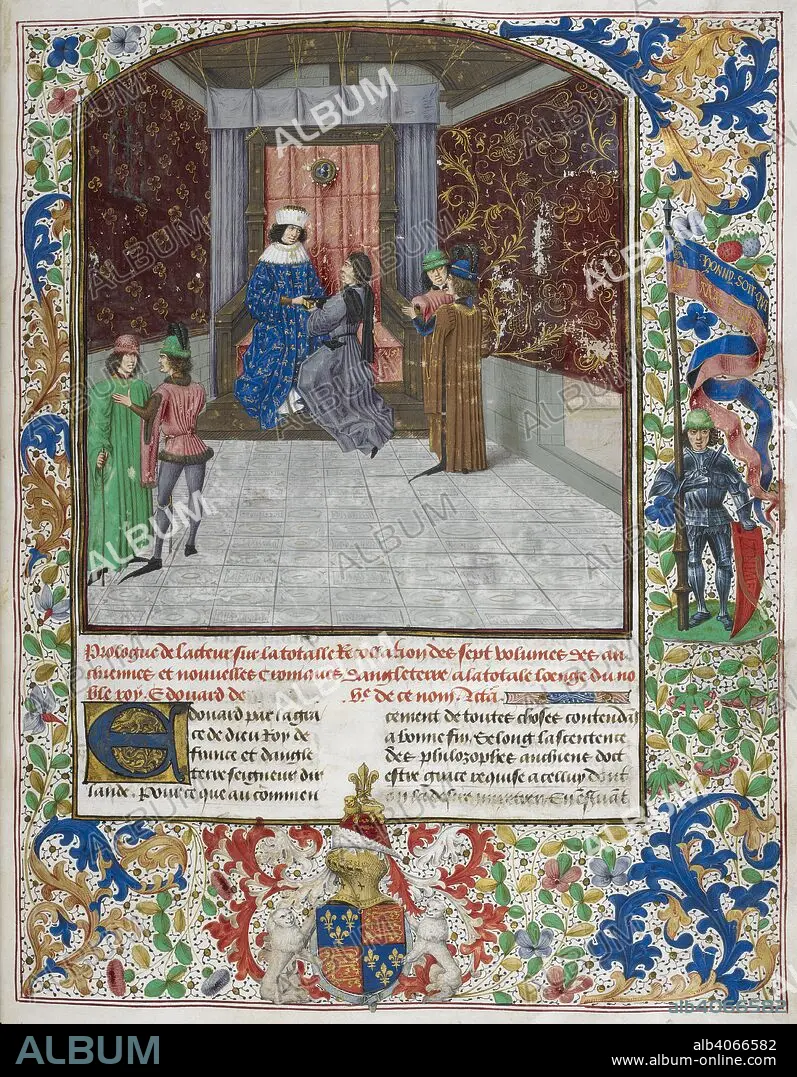 HONNY SOIT QUI
Prologue de lacteur sur la totalle Recollation des sept volumes des an
chiennes et nouvelles Croniques dangleterre a la totale loenge du no
ble roy. Edouard de
Ve de ce nom.
Edouard par la gra
ce de dieu Roy de
france et dangle
terre seigneur dir
lande. Pour ce que au commen
cement de toutes choses contendãs
a bonne fin. Selong la sentence
des philosophes anchiens doit
estre grace requise a celluy dont
ALBUM
alb4066582
ALBUM
alb4066582
www.album-online.com